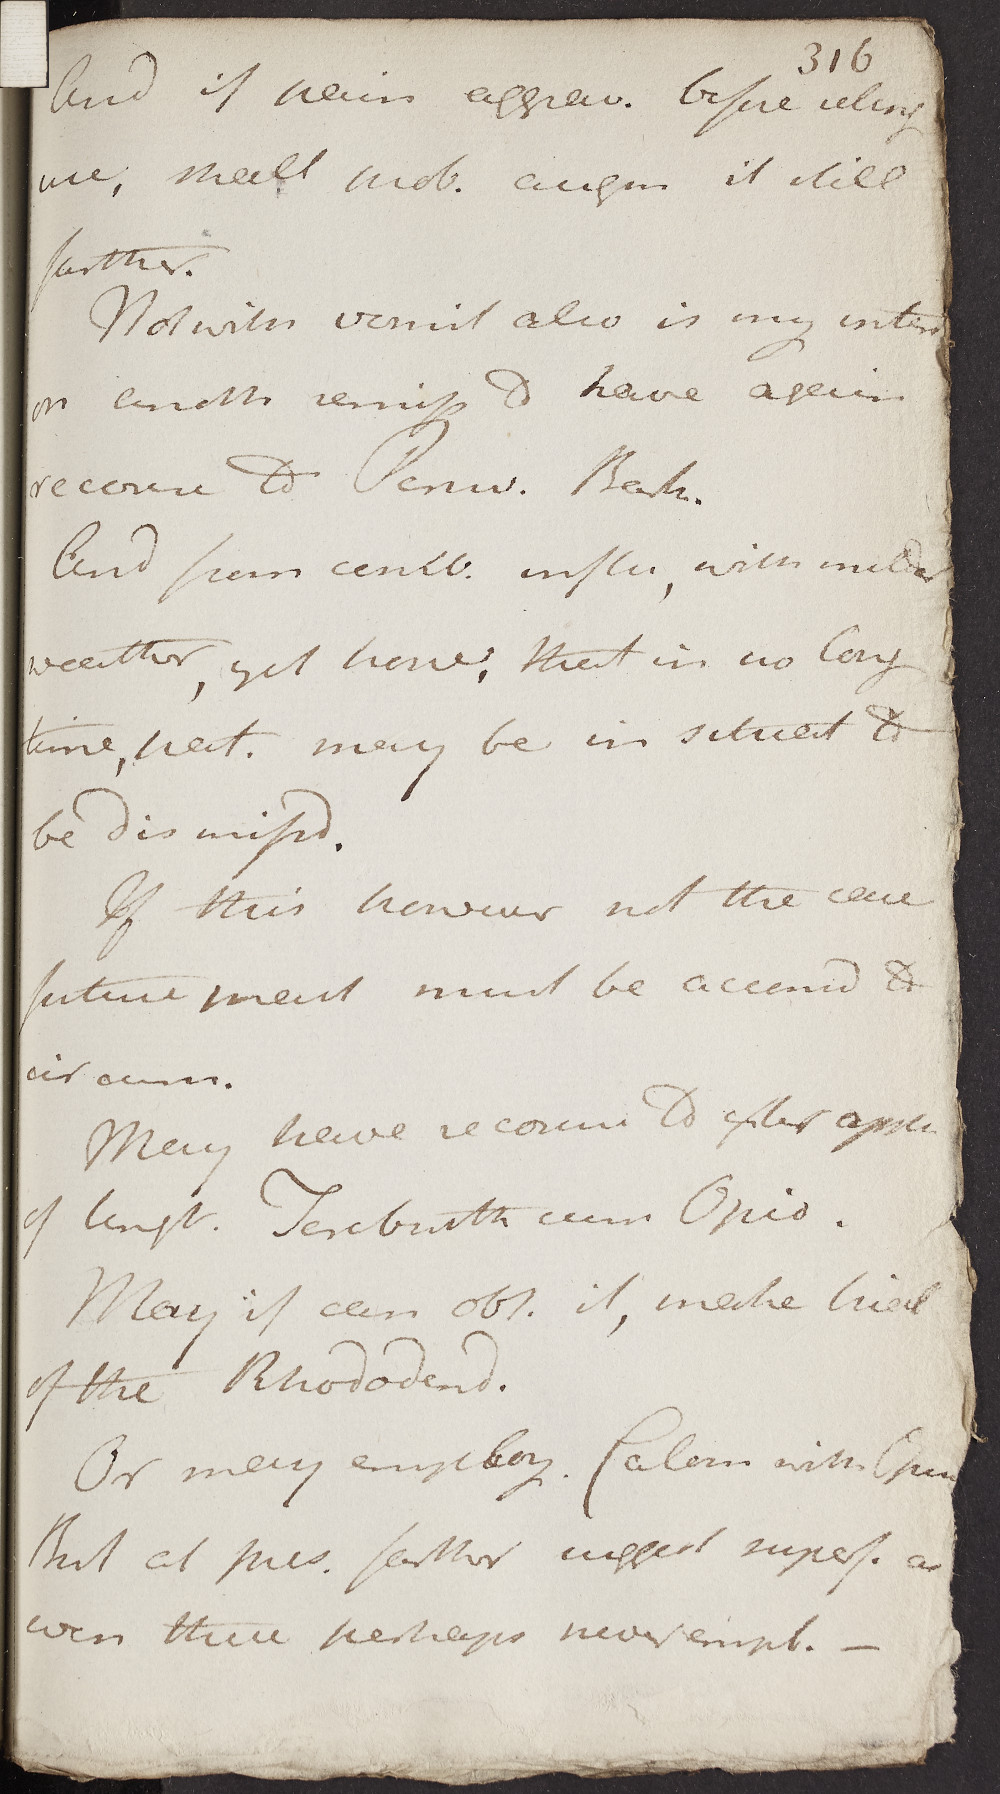 316
And if pain aggrav. before using
me, shall prob. augm it still
farther.
Notwith vomit also is my intens
on anoth remiss to have again
recourse to Peruv. Bark.
And from comb. influ, with milder
weather, yet hope, that in no long
time, pat. may be in situat to
be dismissd.
If this however not the case
future pract must be accomd to
circum.
May have recourse to after appli
of Ungt. Terebinth cum Opio.
May if can obt. it, make trial
of the Rhododend.
Or may employ. Calom with Opium
But at pres. farther suggest superf. as
even these perhaps never empl. —